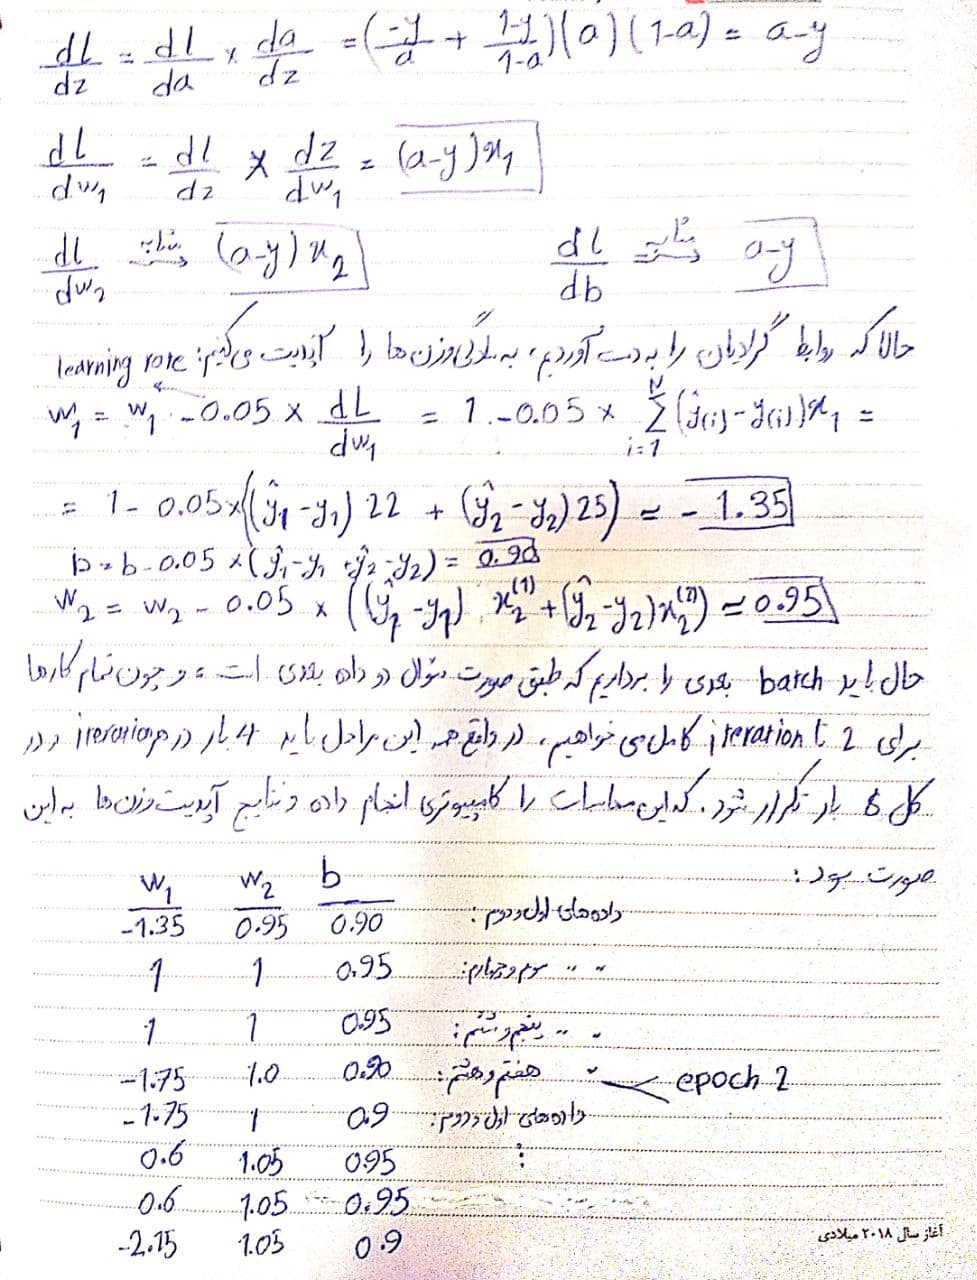 dL/dz = dl/da × da/dz = (-y/a + 1-y/1-a)(a)(1-a) = a-y
dL/dw₁ = dl/dz × dz/dw₁ = (a-y)x₁
dL/dw₂ مشابه (a-y)x₂ dl/db مشابه a-y
حالا که روابط گرادیان را به دست آوردیم، به سادگی وزن ها را آپدیت می کنیم:
learning rate
w₁ = w₁ - 0.05 × dL/dw₁ = 1 - 0.05 × Σ_{i=1}^{N} (ŷ(i) - y(i))x₁ =
= 1 - 0.05×((ŷ₁-y₁)22 + (ŷ₂-y₂)25) ≈ -1.35
b = b - 0.05 × (ŷ₁-y₁+ŷ₂-y₂) = 0.90
w₂ = w₂ - 0.05 × ((ŷ₁-y₁) x₂⁽¹⁾ + (ŷ₂-y₂)x₂⁽²⁾) ≈ 0.95
حال باید batch بعدی را برداریم که طبق صورت سوال دو داده بعدی است، و چون تمام کارها
برای 2 تا iteration کامل می خواهیم، در واقع همه این مراحل باید 4 بار در هر iteration و در
کل 8 بار تکرار شود. که این محاسبات را کامپیوتری انجام داده و نتایج آپدیت وزن ها به این
صورت بود:
w₁ w₂ b
-1.35 0.95 0.90 داده های اول و دوم:
1 1 0.95 " " سوم و چهارم:
1 1 0.95 " " پنجم و ششم:
-1.75 1.0 0.90 " هفتم و هشتم:
epoch 2
-1.75 1 0.9 داده های اول و دوم:
0.6 1.05 0.95 ⋮
0.6 1.05 0.95
-2.15 1.05 0.9
آغاز سال ۲۰۱۸ میلادی